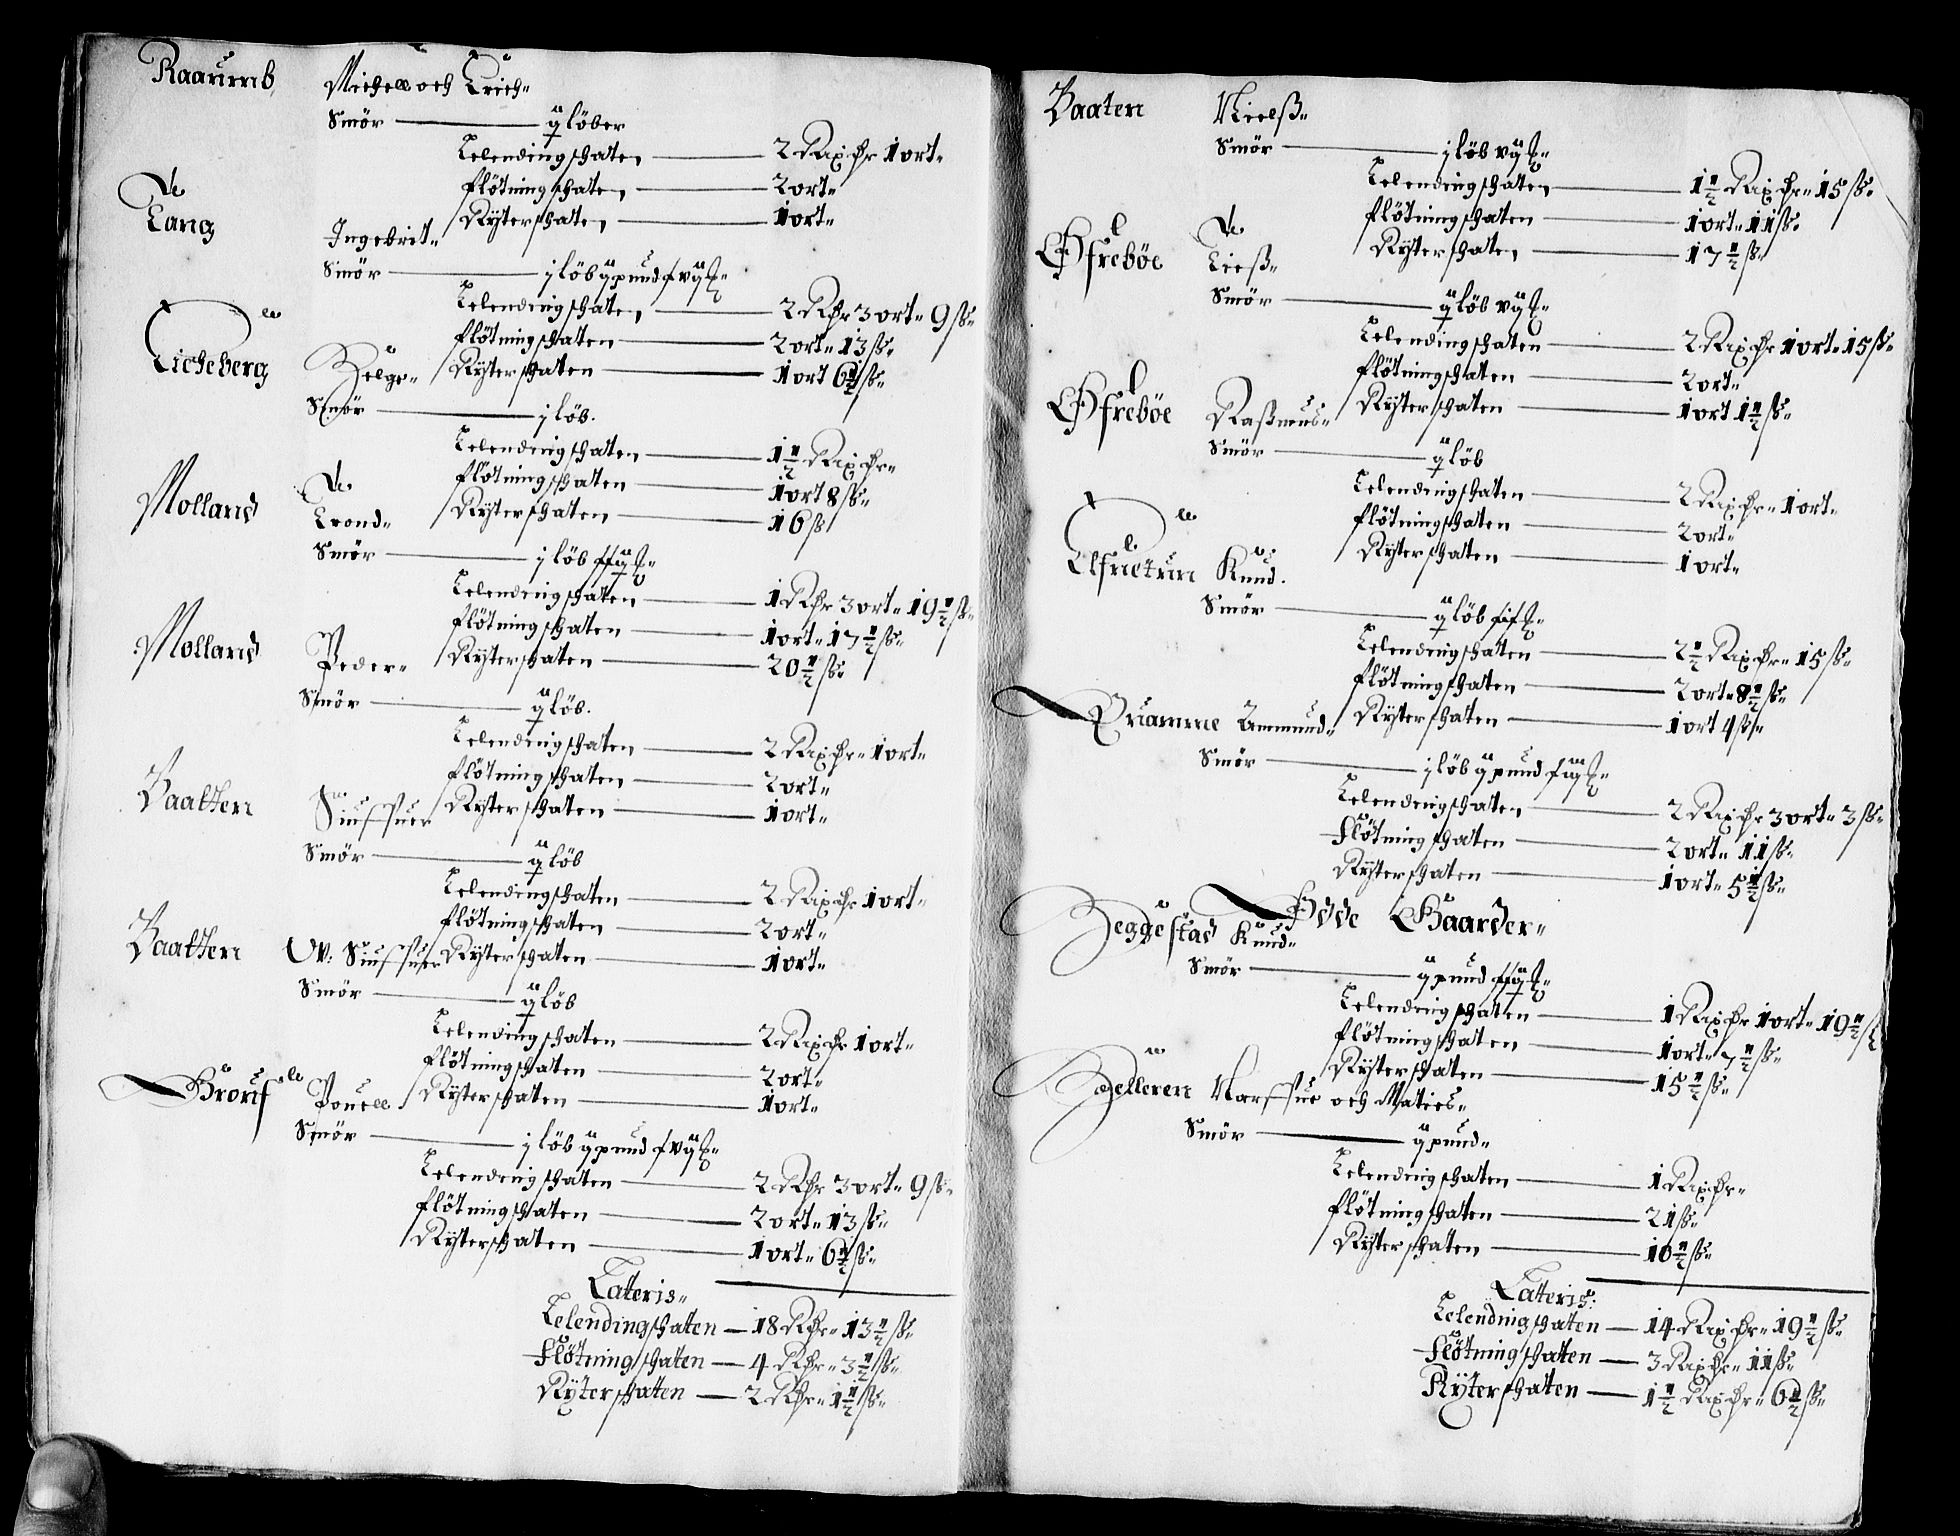 Raaumb Michell och Erich
Smör ij löber
Lelendingschaten 2 Rixdr 1 ort
flötningschaten 2 ort
Ryterschaten 1 ort
Tang Ingebrit
Smör j löb ij pund
Lelendingschaten 2 Rdr 3 ort 9 ß
flötningschaten 2 ort 13 ß
Ryterschaten 1 ort 6½ ß
Eicheberg Helge
Smör j löb.
Lelendingschaten 1½ Rixdr
flötningschaten 1 ort 8 ß
Ryterschaten 16 ß
Molland Trond
Smör j löb
Lelendingschaten 1 Rdr 3 ort 19½ ß
flötningschaten 1 ort 17½ ß
Ryterschaten 20½ ß
Molland Peder
Smör ij löb.
Lelendingschaten 2 Rixdr 1 ort
flötningschaten 2 ort
Ryterschaten 1 ort
Vaatten Siuffuer
Smör ij löb
Lelendingschaten 2 Rixdr 1 ort
flötningschaten 2 ort
Ryterschaten 1 ort
Vaatten Siuffuer
Smör ij löb
Lelendingschaten 2 Rixdr 1 ort
flötningschaten 2 ort
Ryterschaten 1 ort
Pouell
Smör j löb ij pund
Lelendingschaten 2 Rdr 3 ort 9 ß
flötningschaten 2 ort 13 ß
Ryterschaten 1 ort 6½ ß
Lateris
Lelendingschaten 18 Rdr 13½ ß
Flötningschaten 4 Rdr 3½ ß
Ryterschaten 2 Rdr 1½ ß
Vaaten Nielß
Smör j löb
Lelendingschaten 1½ Rixdr 15 ß
flötningschaten 1 ort 11 ß
Ryterschaten 17½ ß
Öfreböe
Smör ij löb
Lelendingschaten 2 Rixdr 1 ort 15 ß
flötningschaten 2 ort
Ryterschaten 1 ort 1½ ß
Öfreböe Raßmus
Smör ij löb
Lelendingschaten 2 Rixdr 1 ort
flötningschaten 2 ort
Ryterschaten 1 ort
Knud.
Smör ij löb
Lelendingschaten 2½ Rixdr 15 ß
flötningschaten 2 ort 8½ ß
Ryterschaten 1 ort 4 ß
Quamme Ammund
Smör j löb ij pund
Lelendingschaten 2 Rixdr 3 ort 3 ß
Flötningschaten 2 ort 11 ß
Ryterschaten 1 ort 5½ ß
Ödde Gaarder
Heggestad Knud
Smör ij pund
Lelendingschaten 1 Rixdr 1 ort 19½ ß
flötningschaten 1 ort 7½ ß
Ryterschaten 15½ ß
Helleren Narffue och Maties
Smör ij pund
Lelendingschaten 1 Rixdr
flötningschaten 21 ß
Ryterschaten 10½ ß
Lateris:
Lelendingschaten 14 Rixdr 19½ ß
Flötningschaten 3 Rixdr 11 ß
Ryterschaten 1½ Rixdr 6½ ß